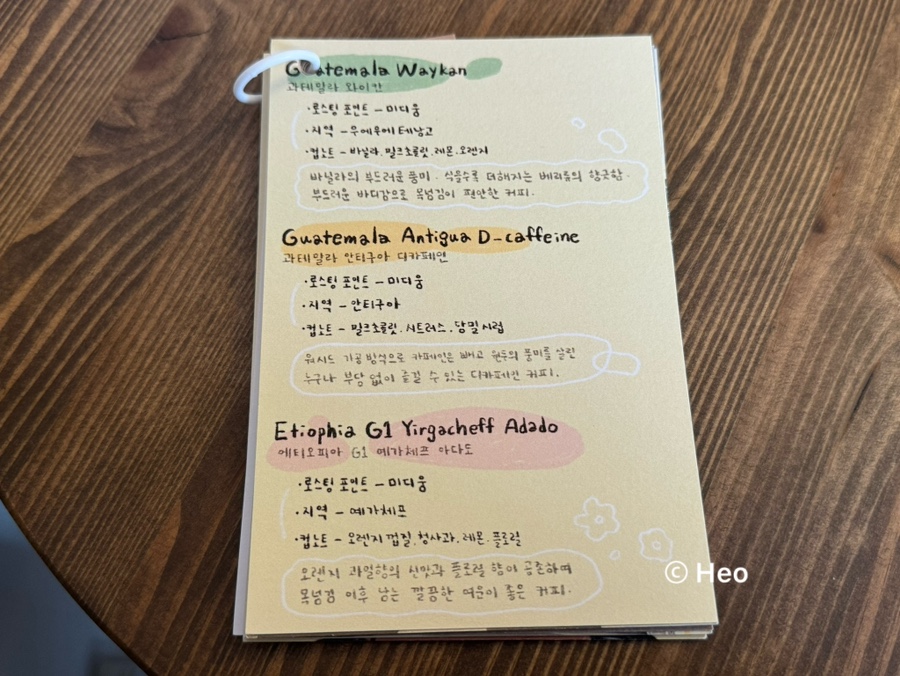 Guatemala Waykan
과테말라 와이칸
· 로스팅 포인트 - 미디움
· 지역 - 우에우에테낭고
· 컵노트 - 바닐라. 밀크초콜릿. 레몬. 오렌지
바닐라의 부드러운 풍미. 식을수록 더해지는 베리류의 향긋함.
부드러운 바디감으로 목넘김이 편안한 커피.
Guatemala Antigua D-caffeine
과테말라 안티구아 디카페인
· 로스팅 포인트 - 미디움
· 지역 - 안티구아
· 컵노트 - 밀크초콜릿. 시트러스. 당밀시럽
워시드 가공 방식으로 카페인은 빼고 원두의 풍미를 살린
누구나 부담 없이 즐길 수 있는 디카페인 커피.
Etiophia G1 Yirgacheff Adado
에티오피아 G1 예가체프 아다도
· 로스팅 포인트 - 미디움
· 지역 - 예가체프
· 컵노트 - 오렌지 껍질. 청사과. 레몬. 플로럴
오렌지 과일향의 신맛과 플로럴 향이 공존하며
목넘김 이후 남는 깔끔한 여운이 좋은 커피.
© Heo